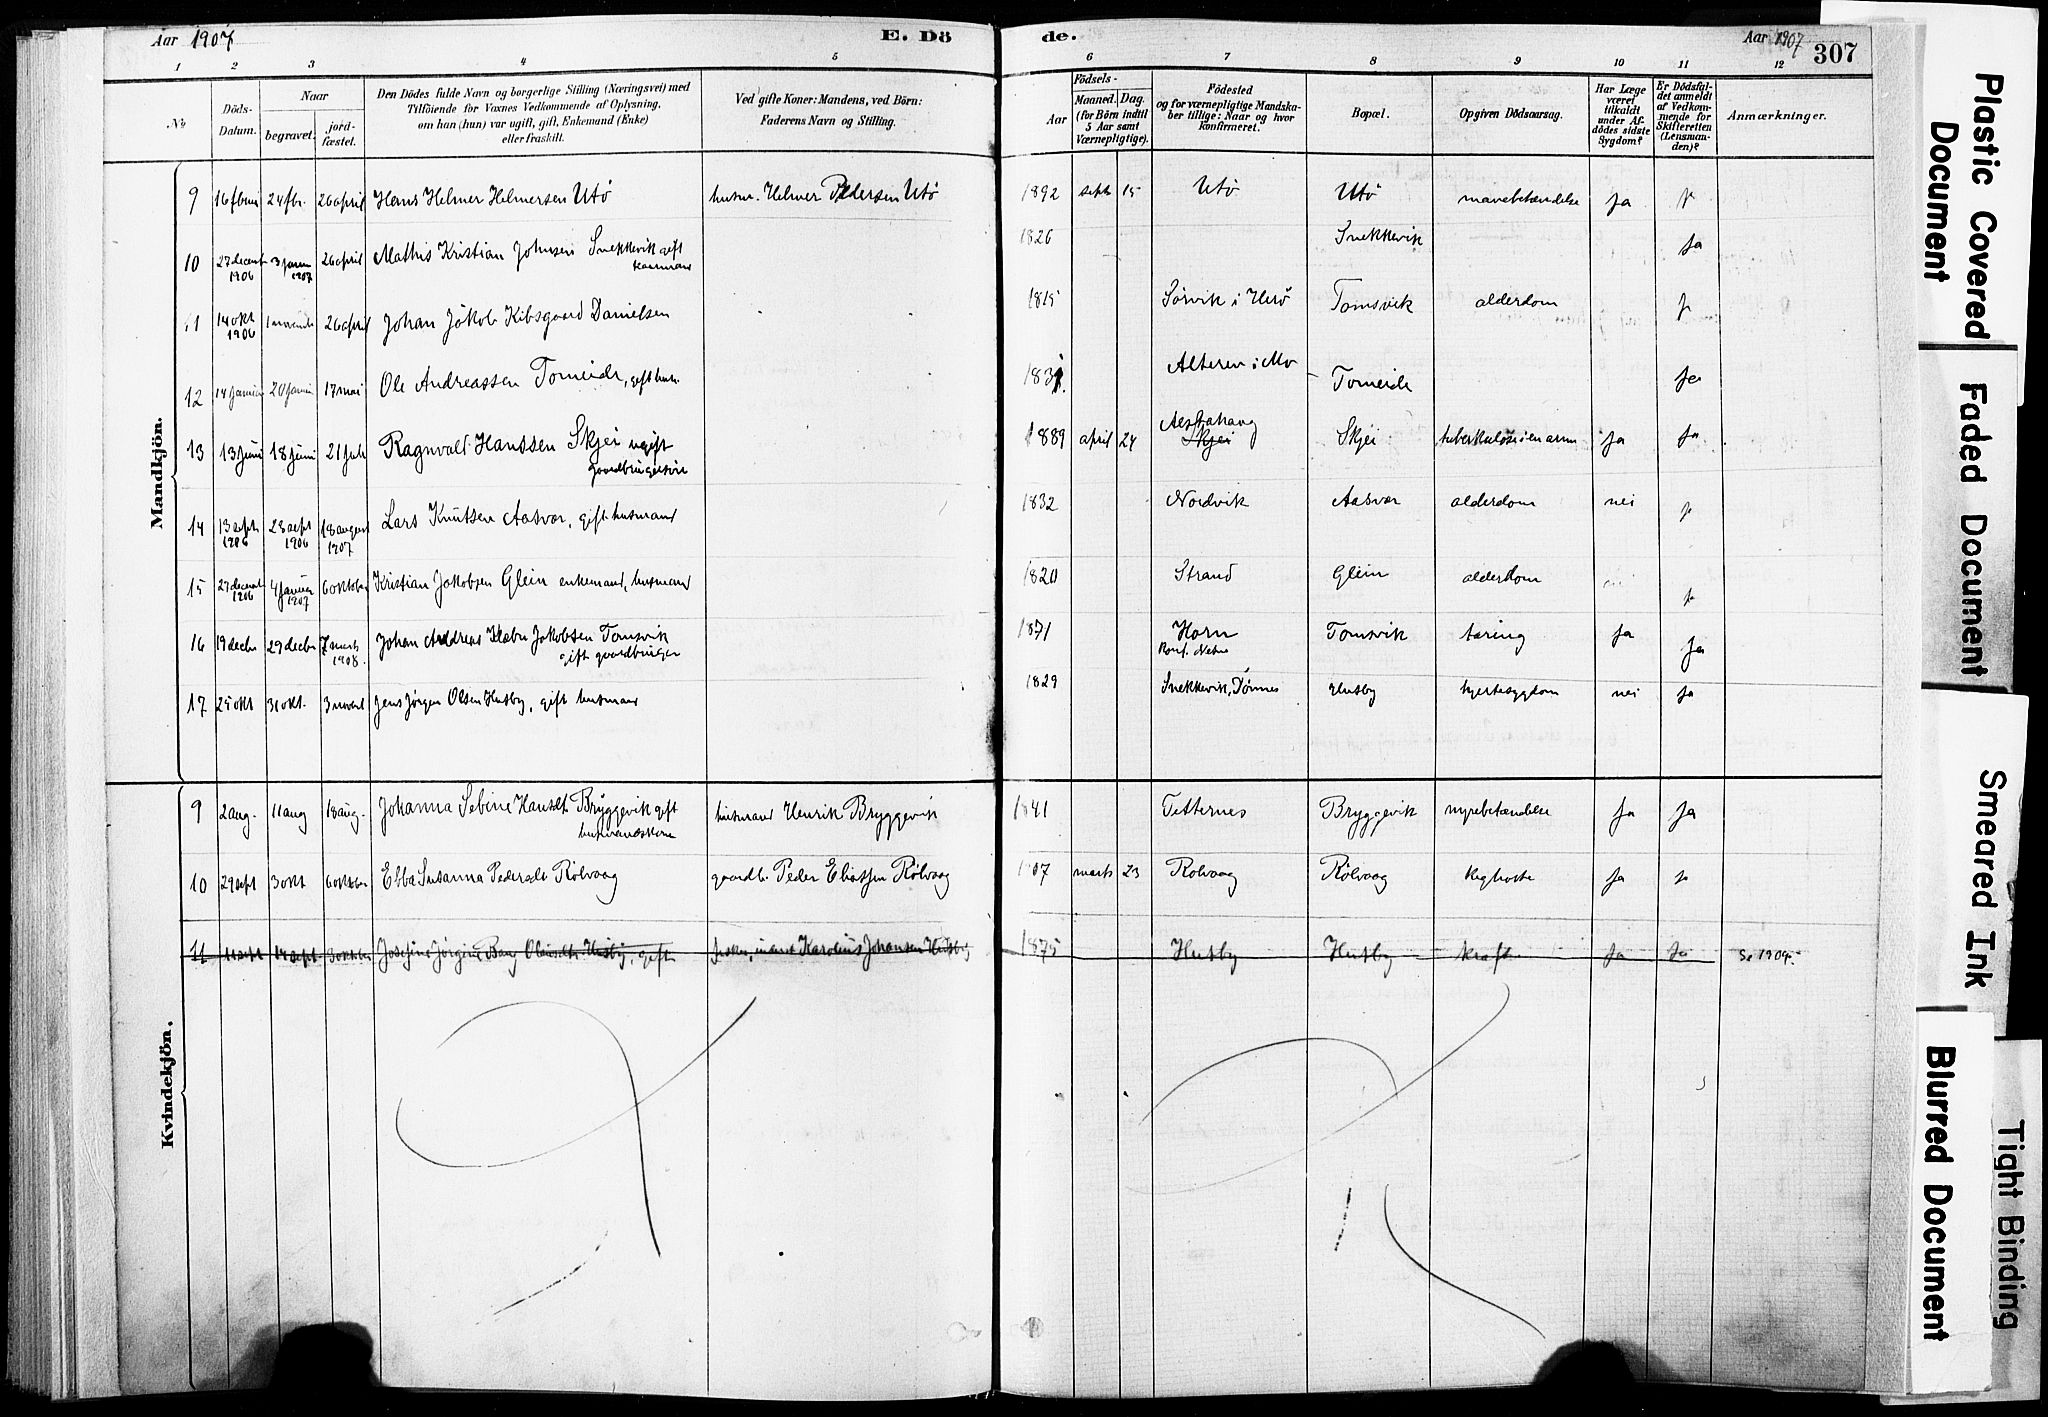 Aar 1907
E. Dö
de.
Aar 1907
307
1 2 3 4 5 6 7 8 9 10 11 12
No
Döds-Datum.
Naar
begravet.
jord-fæstet.
Den Dödes fulde Navn og borgerlige Stilling (Næringsvei) med
Tilföiende for Voxnes Vedkommende af Oplysning,
om han (hun) var ugift, gift, Enkemand (Enke)
eller fraskilt.
Ved gifte Koner: Mandens, ved Börn:
Faderens Navn og Stilling.
Aar
Födsels-
Maaned. Dag.
(for Börn indtil
5 Aar samt
Værnepligtige).
Födested
og for værnepligtige Mandska-
ber tillige: Naar og hvor
konfirmeret.
Bopæl.
Opgiven Dödsaarsag.
Har Læge
været
tilkaldt
under Af-
dödes sidste
Sygdom?
Er Dödsfal-
det anmeldt
af Vedkom-
mende for
Skifteretten
(Lensman-
den)?
Anmærkninger.
Mandkjön.
9 24 fbr. 26 april Hans Helmer Helmersen Utö husm. Helmer Pedersen Utö 1892 sept 15 Utö Utö mavebetændelse ja ja
10 27 decem 1906 3 janu 1907 26 april Mathis Kristian Johnsen Snekkevik gift 1826 Snekkevik ja
11 14 okt 1906 1 novemb 26 april Johan Jakob Kibsgaard Danielsen 1815 Sörvik i Herö Tomsvik alderdom ja
12 14 januar 20 januar 17 mai Ole Andreassen Tomeide, gift husm. Alteren i Mo Tomeide ja
13 13 juni 18 juni 21 juli Ragnvald Hanssen Skjei ugift
gaardbrugersön 1889 april 24 Skjei Skjei tuberkulose i en arm ja ja
14 13 sept 1906 23 sept 1906 18 august 1907 Lars Knutsen Aasvær, gift husmand 1832 Nordvik Aasvær alderdom nei ja
15 27 decemb 1906 4 januar 1907 6 oktober Kristian Jakobsen Glein enkemand, husmand 1820 Strand Glein alderdom ja
16 19 decbr 29 decbr 7 marts 1908. Johan Andreas Jakobsen Tomsvik
gift gaardbruger 1871 Horn
konf. Nesne Tomsvik tæring ja ja
17 25 okt 31 okt. 3 novemb Jens Jörgen Olsen Husby, gift husmand 1829 Snekkevik, Dönnes Husby hjertesygdom nei ja
Kvindekjön.
9 2 aug. 11 aug 18 aug. Johanna Sebine Hansdt Bryggevik gift
husmandskone husmand Henrik Bryggevik 1841 Tetternes Bryggevik nyrebetændelse ja ja
10 29 sept 3 okt 6 oktober Ebba Susanna Pedersdt Rölvaag gaardb. Peder Eliassen Rölvaag 1907 marts 23 Rölvaag Rölvaag kighoste ja ja
11 11 sept 14 sept 3 oktober Josefine Jörgine Berg Olausdtr Husby, gift Karolius Johansen Husby 1875 Husby Husby kræft ja ja Se 1909.
Plastic Covered Document
Faded Document
Smeared Ink
Blurred Document
Tight Binding